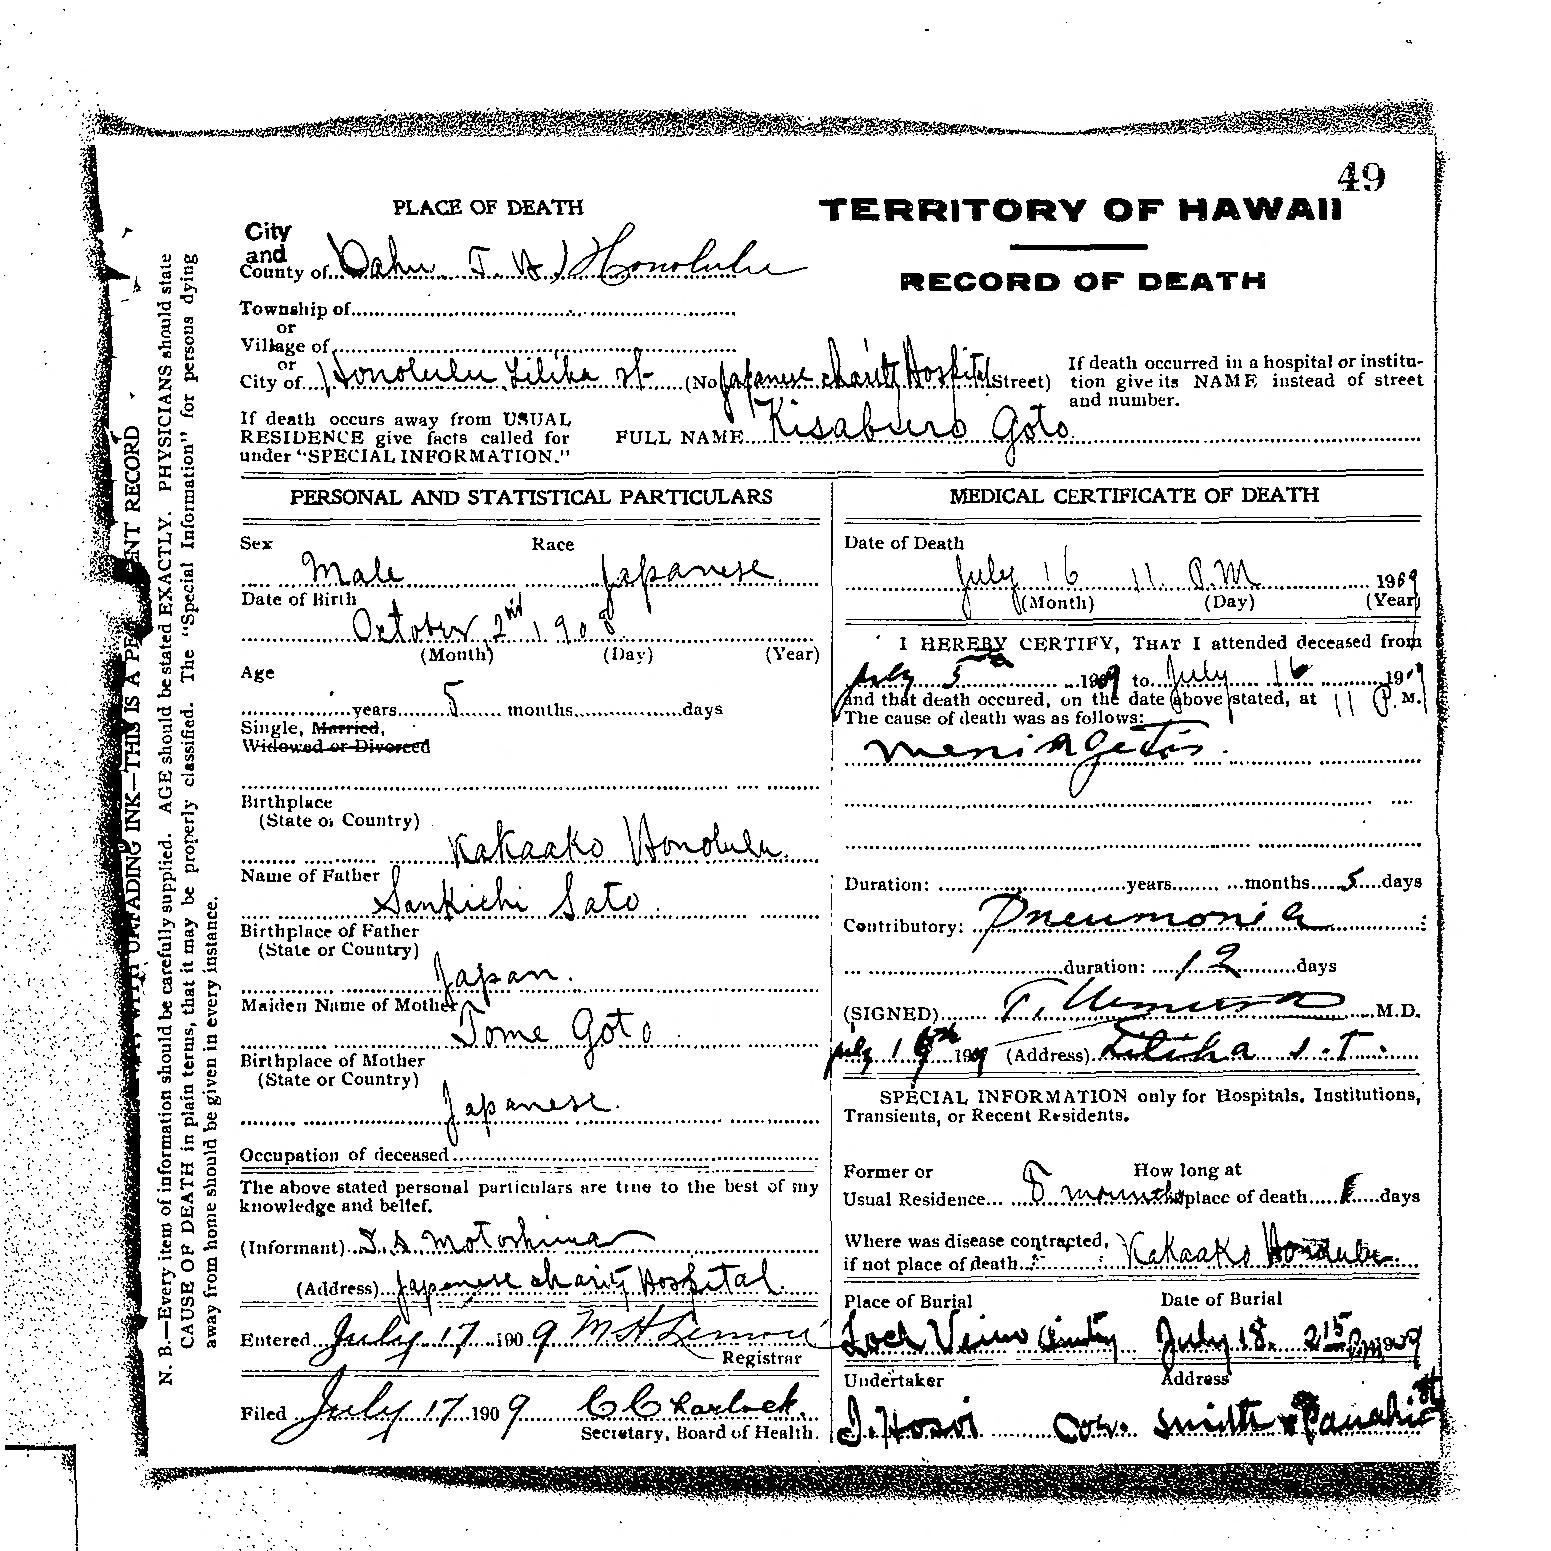 49
PLACE OF DEATH
TERRITORY OF HAWAII
RECORD OF DEATH
City
and
County of Oahu T. H. Honolulu
Township of
or
Village of
or
City of Honolulu Liliha st (No Japanese charity Hospital Street)
If death occurred in a hospital or institu-
tion give its NAME instead of street
and number.
If death occurs away from USUAL
RESIDENCE give facts called for
under "SPECIAL INFORMATION."
FULL NAME Kisaburo Goto
PERSONAL AND STATISTICAL PARTICULARS
Sex Race
Male Japanese
Date of Birth
October 2nd 1908
(Month) (Day) (Year)
Age
years 5 months days
Single, Married,
Widowed or Divorced
Birthplace
(State or Country)
Kakaako Honolulu
Name of Father
Sankichi Sato
Birthplace of Father
(State or Country)
Japan.
Maiden Name of Mother
Tome Goto
Birthplace of Mother
(State or Country)
Japanese.
Occupation of deceased
The above stated personal particulars are true to the best of my
knowledge and belief.
(Informant) T. S. Motoshima
(Address) Japanese charity Hospital.
Entered July 17 1909
Registrar
Filed July 17 1909
Secretary, Board of Health.
MEDICAL CERTIFICATE OF DEATH
Date of Death
July 16 11. P.M 1909
(Month) (Day) (Year)
I HEREBY CERTIFY, THAT I attended deceased from
July 5th 1909 to July 16 1909
and that death occured, on the date above stated, at 11 P. M.
The cause of death was as follows:
meningetis.
Duration: years months 5 days
Contributory: Pneumonia
duration: 12 days
(SIGNED) T. Uemura M.D.
July 1909 (Address) Liliha S.T.
SPECIAL INFORMATION only for Hospitals, Institutions,
Transients, or Recent Residents.
Former or How long at
Usual Residence 8 mounths place of death days
Where was disease contracted,
if not place of death Kakaako Honolulu
Place of Burial Date of Burial
Loch July 18. 2 15
Undertaker Address
Cor. Smith & Pauahi st
N. B.—Every item of information should be carefully supplied. AGE should be stated EXACTLY. PHYSICIANS should state
CAUSE OF DEATH in plain terms, that it may be properly classified. The "Special Information" for persons dying
away from home should be given in every instance.
INK—THIS IS A RECORD